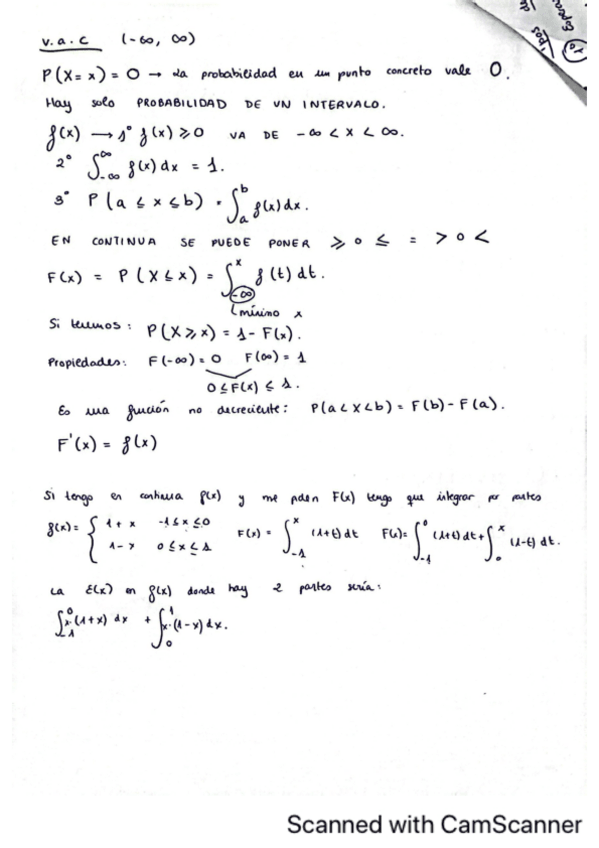 v.a.c (-∞, ∞)
P(X=x) = 0 → La probabilidad en un punto concreto vale 0.
Hay solo PROBABILIDAD DE UN INTERVALO.
f(x) → 1° f(x) ≥ 0 VA DE -∞ < x < ∞.
2° ∫_{-∞}^{∞} f(x) dx = 1.
3° P(a ≤ x ≤ b) = ∫_a^b f(x) dx.
EN CONTINUA SE PUEDE PONER ≥ o ≤ = > o <
F(x) = P(X ≤ x) = ∫_{-∞}^x f(t) dt.
mínimo x
Si tenemos: P(X ≥ x) = 1 - F(x).
Propiedades: F(-∞) = 0 F(∞) = 1
0 ≤ F(x) ≤ 1.
Es una función no decreciente: P(a < X < b) = F(b) - F(a).
F'(x) = f(x)
Si tengo en continua f(x) y me piden F(x) tengo que integrar por partes
f(x) = { 1 + x -1 ≤ x ≤ 0 F(x) = ∫_{-1}^x (1+t) dt F(x) = ∫_{-1}^0 (1+t) dt + ∫_0^x (1-t) dt.
1 - x 0 ≤ x ≤ 1
La E(x) en f(x) donde hay 2 partes sería:
∫_{-1}^0 x·(1+x) dx + ∫_0^1 x·(1-x) dx.
Scanned with CamScanner